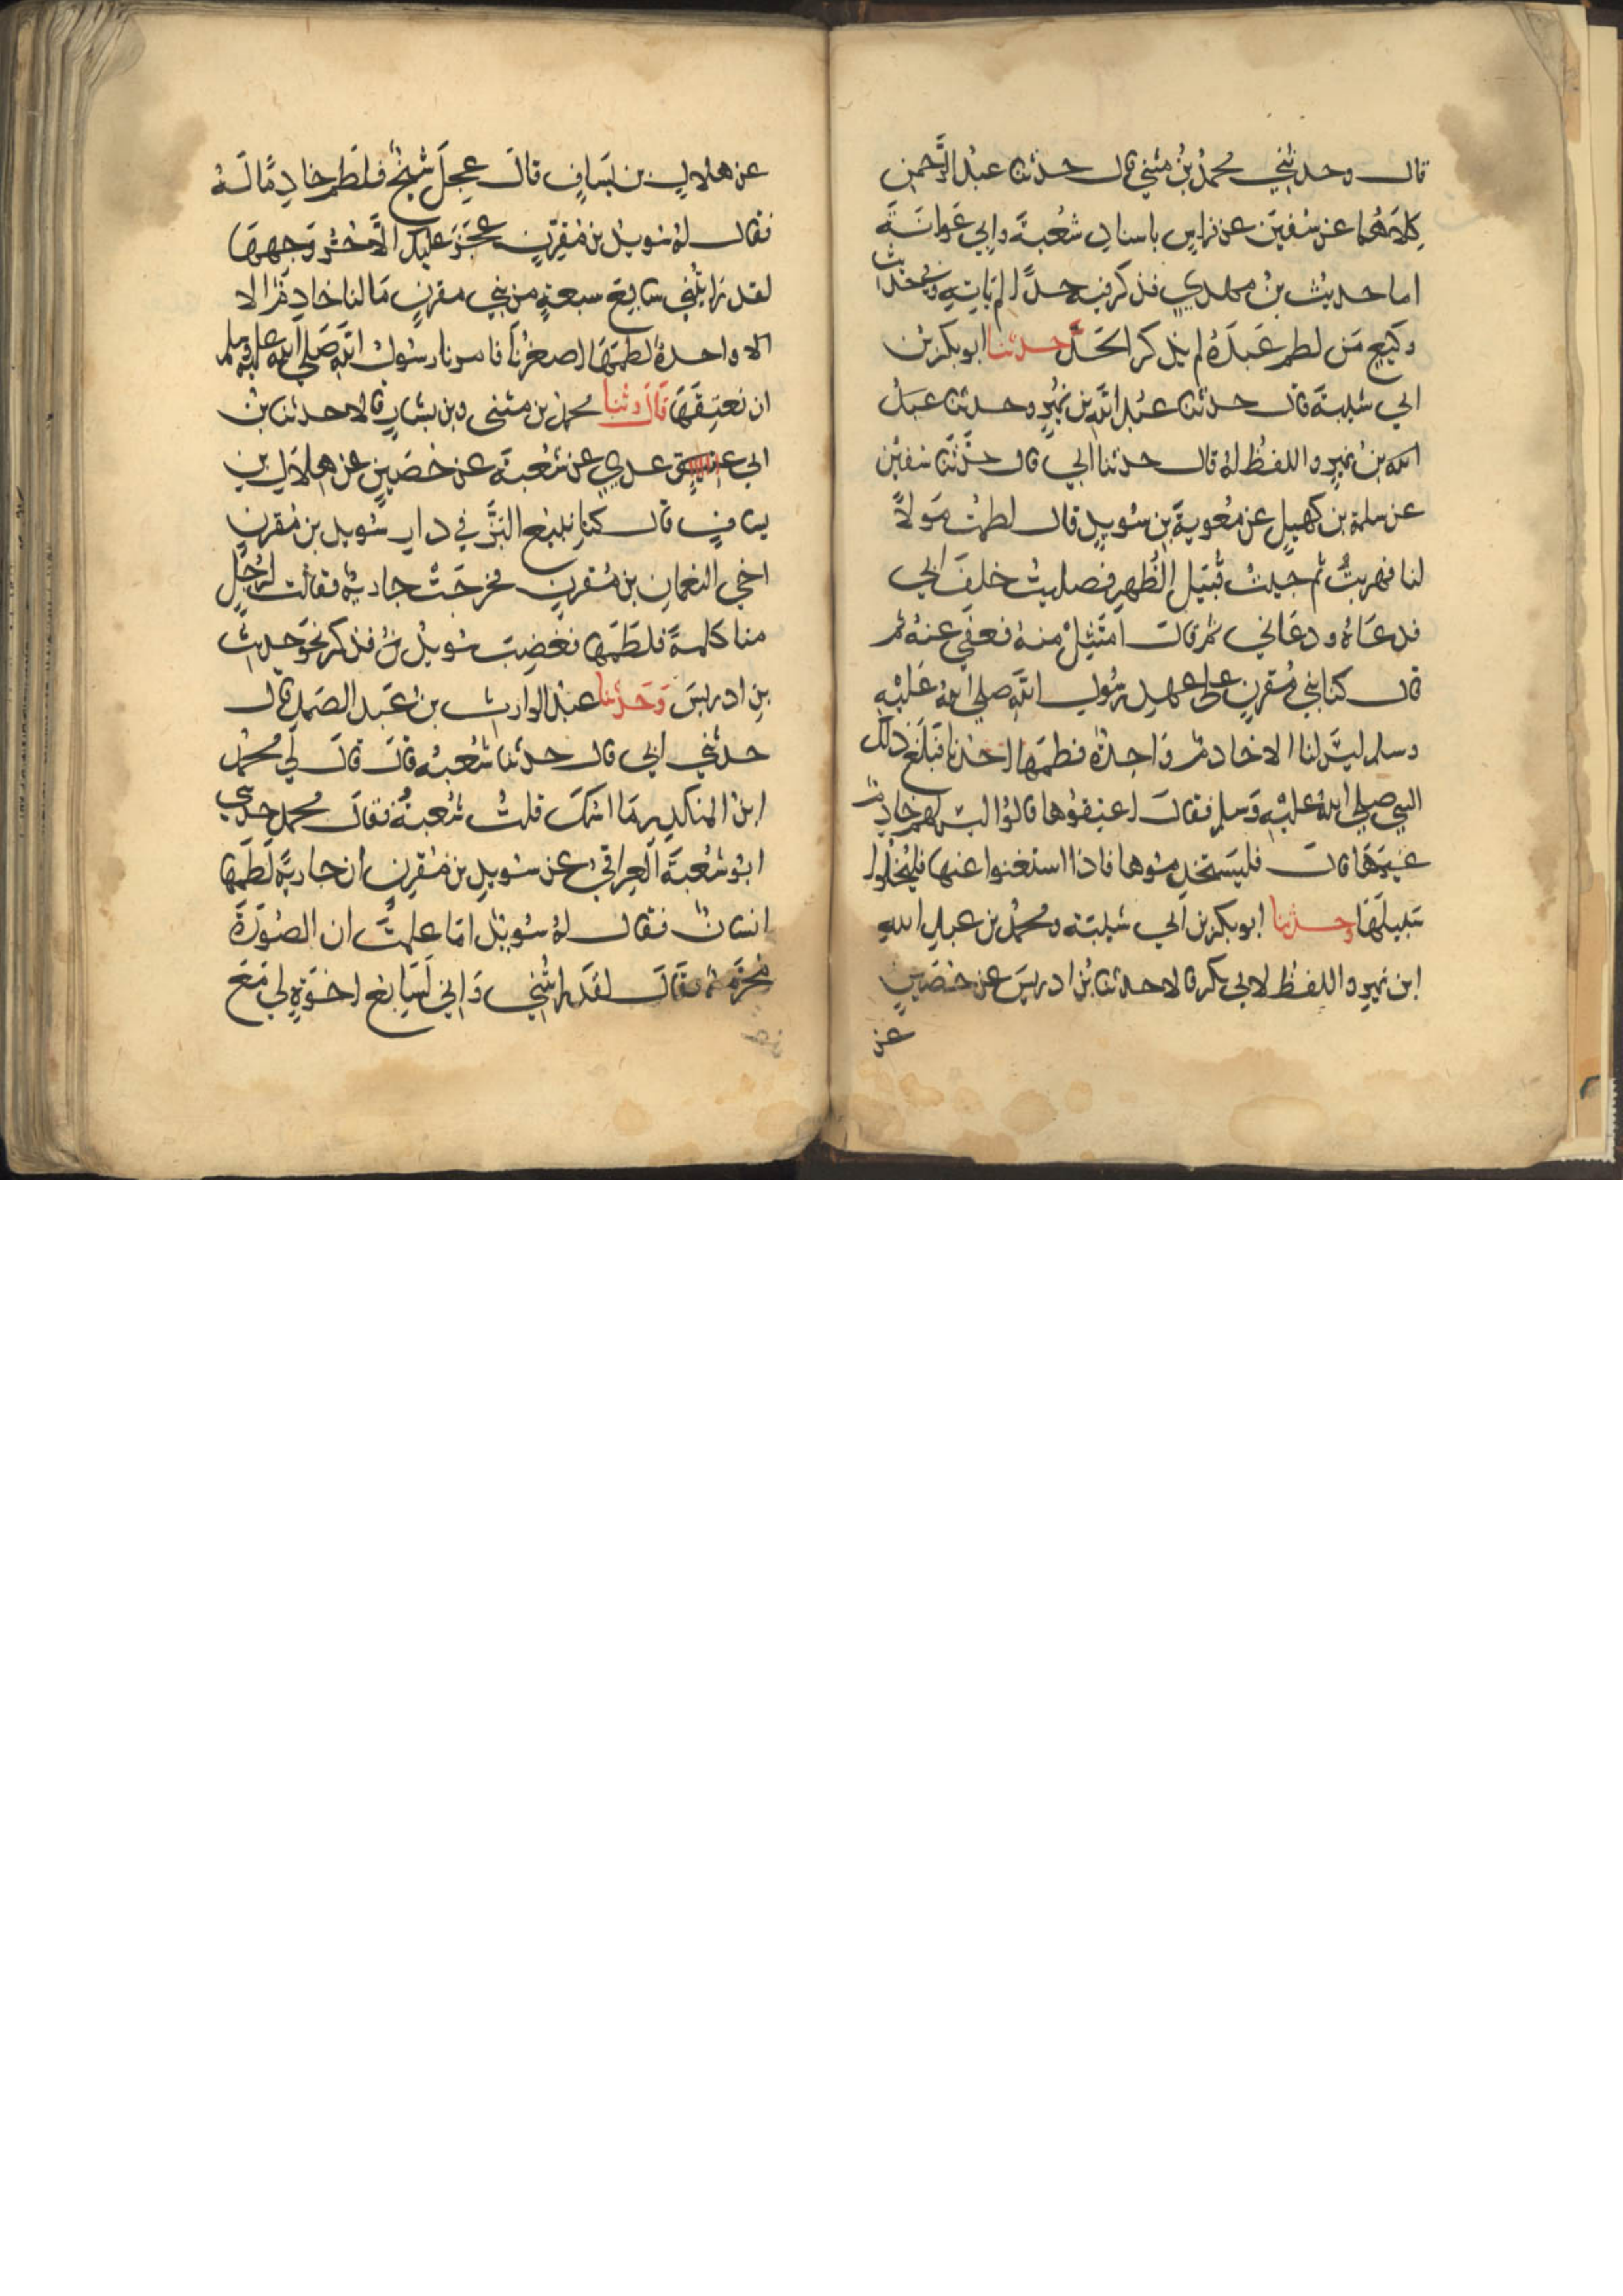 قال وحدثني محمد بن مثني قال حدثنا عبد الرحمن
كلاهما عن سفين عن فراس باسناد شعبة وابي عوانة
اما حديث بن مهدي فذكر فيه حدا لم ياته وفي حديث
وكيع من لطم عبده لم يذكر الحد حدثنا ابو بكر بن
ابي شيبة قال حدثنا عبد الله بن نمير وحدثنا عبد
الله بن نمير واللفظ له قال حدثنا ابي قال حدثنا سفين
عن سلمة بن كهيل عن معوية بن سويد قال لطمت مولا
لنا فهربت ثم جيت قبيل الظهر فصليت خلف ابي
فدعاه ودعاني ثم قال امتثل منه فعفي عنه ثم
قال كنا بني مقرن علي عهد رسول الله صلي الله عليه
وسلم ليس لنا الا خادم واحدة فطمها احدنا فبلغ ذلك
النبي صلي الله عليه وسلم فقال اعتقوها قالوا ليس لهم خادم
غيرها قال فليستخدموها فاذا استغنوا عنها فليخلوا
سبيلها وحدثنا ابو بكر بن ابي شيبة ومحمد بن عبد الله
ابن نمير واللفظ لابي بكر قالا حدثنا بن ادريس عن حصين
عن
عن هلال بن يساف قال عجل شيخ فلطم خادما له
فقال له سويد بن مقرن عجز عليك الا حر وجهها
لقد رايتني سابع سبعة من بني مقرن مالنا خادم الا
الا واحدة لطمها اصغرنا فامرنا رسول الله صلي الله عليه وسلم
ان نعتقها قال وثنا محمد بن مثنى وبن بشار قالا حدثنا بن
ابي عدي عن شعبة عن حصين عن هلال بن
يساف قال كنا نبيع البز في دار سويد بن مقرن
اخي النعمان بن مقرن فخرجت جارية فقالت لرجل
منا كلمة فلطمها فغضب سويد فذكر نحو حديث
بن ادريس وحدثنا عبد الوارث بن عبد الصمد قال
حدثني ابي قال حدثنا شعبة قال قال لي محمد
ابن المنكدر ما اسمك قلت شعبة فقال محمد حدثني
ابو شعبة العراقي عن سويد بن مقرن ان جارية لطمها
انسان فقال له سويد اما علمت ان الصورة
محرمة فقال لقد رايتني واني لسابع اخوة لي مع